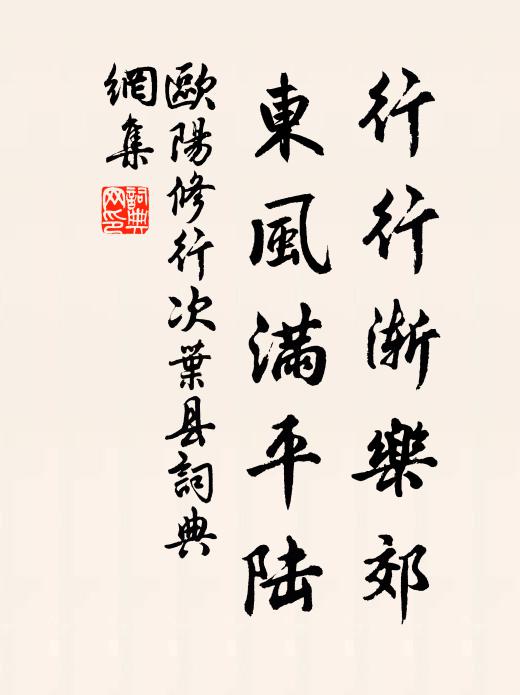 行行渐樂郊
東風满平陆
歐陽修行次葉县詞典
網集
詞典網印